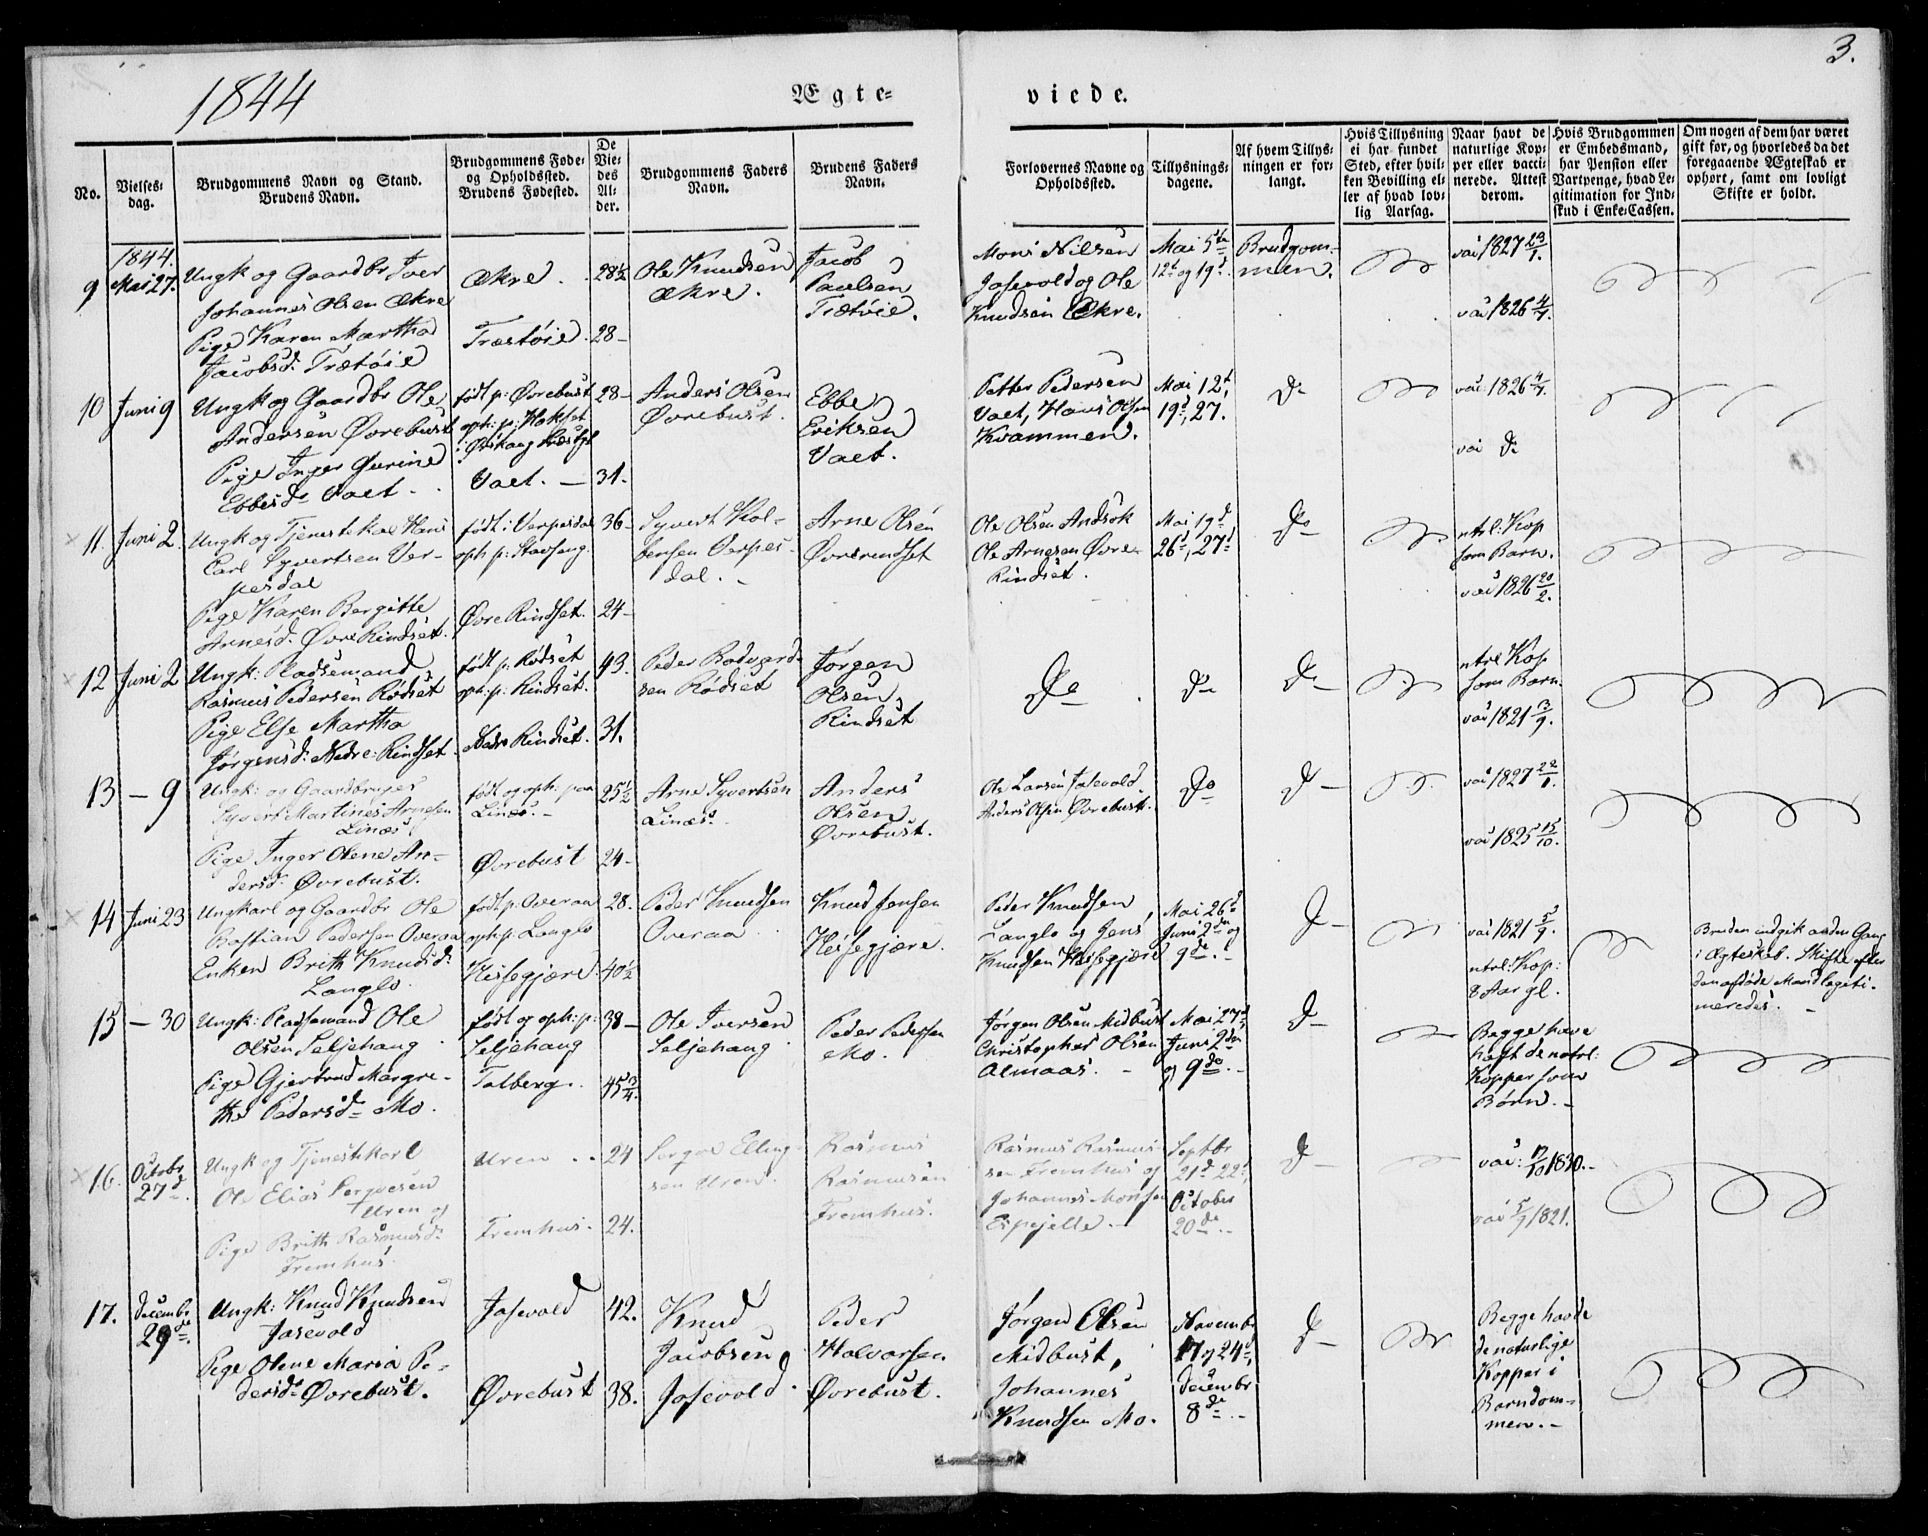 1844
Ægte=
viede.
3.
No.
Vielses=
dag.
Brudgommens Navn og Stand.
Brudens Navn.
Brudgommens Føde=
og Opholdssted.
Brudens Fødested.
De
Vie=
des
Al=
der.
Brudgommens Faders
Navn.
Brudens Faders
Navn.
Forlovernes Navne og
Opholdssted.
Tillysnings=
dagene.
Af hvem Tillys=
ningen er for=
langt.
Hvis Tillysning
ei har fundet
Sted, efter hvil=
ken Bevilling el=
ler af hvad lov=
lig Aarsag.
Naar havt de
naturlige Kop=
per eller vacci=
nerede. Attest
derom.
Hvis Brudgommen
er Embedsmand,
har Pension eller
Vartpenge, hvad Le=
gitimation for Ind=
skud i Enke=Cassen.
Om nogen af dem har været
gift før, og hvorledes da det
foregaaende Ægteskab er
ophørt, samt om lovligt
Skifte er holdt.
1844.
9 Mai 27.
Ungk og Gaardbr. Iver
Johannes Olsen Ækre
Pige Karen Martha
Jacobsd: Trætøie
Ækre.
Træstøie.
28½
28-
Ole Knudsen
Ækre.
Jacob
Paulsen
Trætøie.
Mons Nilsen
Josevold og Ole
Knudsen Ækre.
Mai 5te
12t og 19d.
Brudgom-
men.
vai 1827 23/1.
vai 1826 4/7.
10 Juni 9
Ungk og Gaardbr Ole
Andersen Øvrebust
Pige Inger Gurine
Ebbesd- Vaet.
født p: Øvrebust
oph: p: Hokset
Vaet. -
28-
31.
Anders Olsen
Øvrebust.
Ebbe
Eriksen
Vaet.
Petter Pedersen
Vaet, Hans Olsen
Kvammen.
Mai 12t,
19d, 27.
Do
vai: 1826 4/7.
vai do
11. Juni 2.
Ungk og Tjenestekar Hans
Carl Syvertsen Ver-
pesdal
Pige Karen Bergitte
Arnesd. Øvre Rindset.
født i Verpesdal
oph p: Stavseng.
Øvre Rindset.
36-
24-
Syvert Kol-
bensen Verpes-
dal. -
Arne Olsen
Øvrerindset
Ole Olsen Andsok
Ole Arnesen Øvre-
Rindset.
Mai 19d
26d, 27d
Do
ntrl: Kop
som Barn.
vai 1826 20/2.
12 Juni 2
Ungk: Pladsemand
Rasmus Pedersen Rødset
Pige Else Martha
Jørgensd: Nedre: Rindset.
født p: Rødset
op: p: Rindset.
Nedre Rindset.
43.
31.
Peder Bodvard-
sen Rødset
Jørgen
Olsen
Rindset
Do
Do
Do
ntrl Kop
som Barn.
vai 1821 3/9.
13 - 9
Ungk: og Gaardbruger
Syvert Martines Arnesen
Linæs
Pige Inger Olene An-
dersd. Øvrebust.
født og oph: paa
Linæs. -
Øvrebust
25½
24-
Arne Syvertsen
Linæs.
Anders
Olsen
Øvrebust.
Ole Larsen Josevold.
Anders Olsen Øvrebust.
Do
D -
vai 1827 22/1.
vai 1825 15/10.
14 Juni 23
Ungkarl og Gaardbr Ole
Bastian Pedersen Overaa
Enken Brith Knudsd:
Langlo.
født p: Overaa
oph p: Langlo
Hessegjære.
28.
40½
Peder Knudsen
Overaa
Knud Jensen
Hessegjære.
Peder Knudsen,
Langlo og Jens
Knudsen Hessegjære
Mai 26d
Juni 2den og
9de. -
D -
vai 1821 5/9.
ntrl: Kop:
8 Aar gl.
Bruden indgik anden Gang
i Ægteskab. Skifte efter
den afdøde Mand legiti-
meredes. -
15 - 30
Ungk: Pladsemand Ole
Olsen Seljehaug
Pige Gjertrud Margre-
the Pedersd- Mo.
født og oph: p:
Seljehaug
Talberg.
38-
45¾.
Ole Iversen
Seljehaug
Peder Pedersen
Mo.
Jørgen Olsen Midbust
Christopher Olsen
Almaas. -
Mai 27d,
Juni 2den
og 9de. -
D -
Begge have
havt de natrl:
Kopper som
Børn. -
16. Octobr
27d.
Ungk og Tjenestekarl
Ole Elias Serqvesen
Uren og
Pige Brith Rasmusd:
Fremhus.
Uren
Fremhus.
24
24.
Serqve Elling-
sen Uren.
Rasmus
Rasmusen
Fremhus.
Rasmus Rasmus-
sen Fremhus og
Johannes Monsen
Espejelle. -
Septbr
21d 22d,
October
20de. -
D -
vai: 17/10 1830. -
vai 5/9 1821.
17. Decembr
29de.
Ungk: Knud Knudsen
Josevold
Pige Olene Maria Pe-
dersd- Øvrebust.
Josevold
Øvrebust
42.
38.
Knud
Jacobsen
Josevold.
Peder
Halvorsen
Øvrebust.
Jørgen Olsen
Midbust,
Johannes
Knudsen Mo.
Novembr
17 og 24d,
Decembr
8de. -
D -
Begge havde
de naturlige
Kopper i
Barndom-
men. -